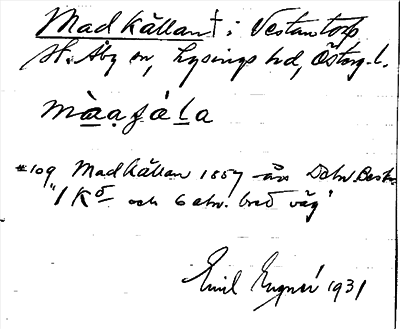 Madkällan† i Vestantorp
St. Åby sn, Lysings hd, Östergl.
màạʂá̱ḻa
#109 Madkällan 1857 års Dchr. Beskr.
"1 Kö och 6 aln. bred väg"
Emil Engner 1931